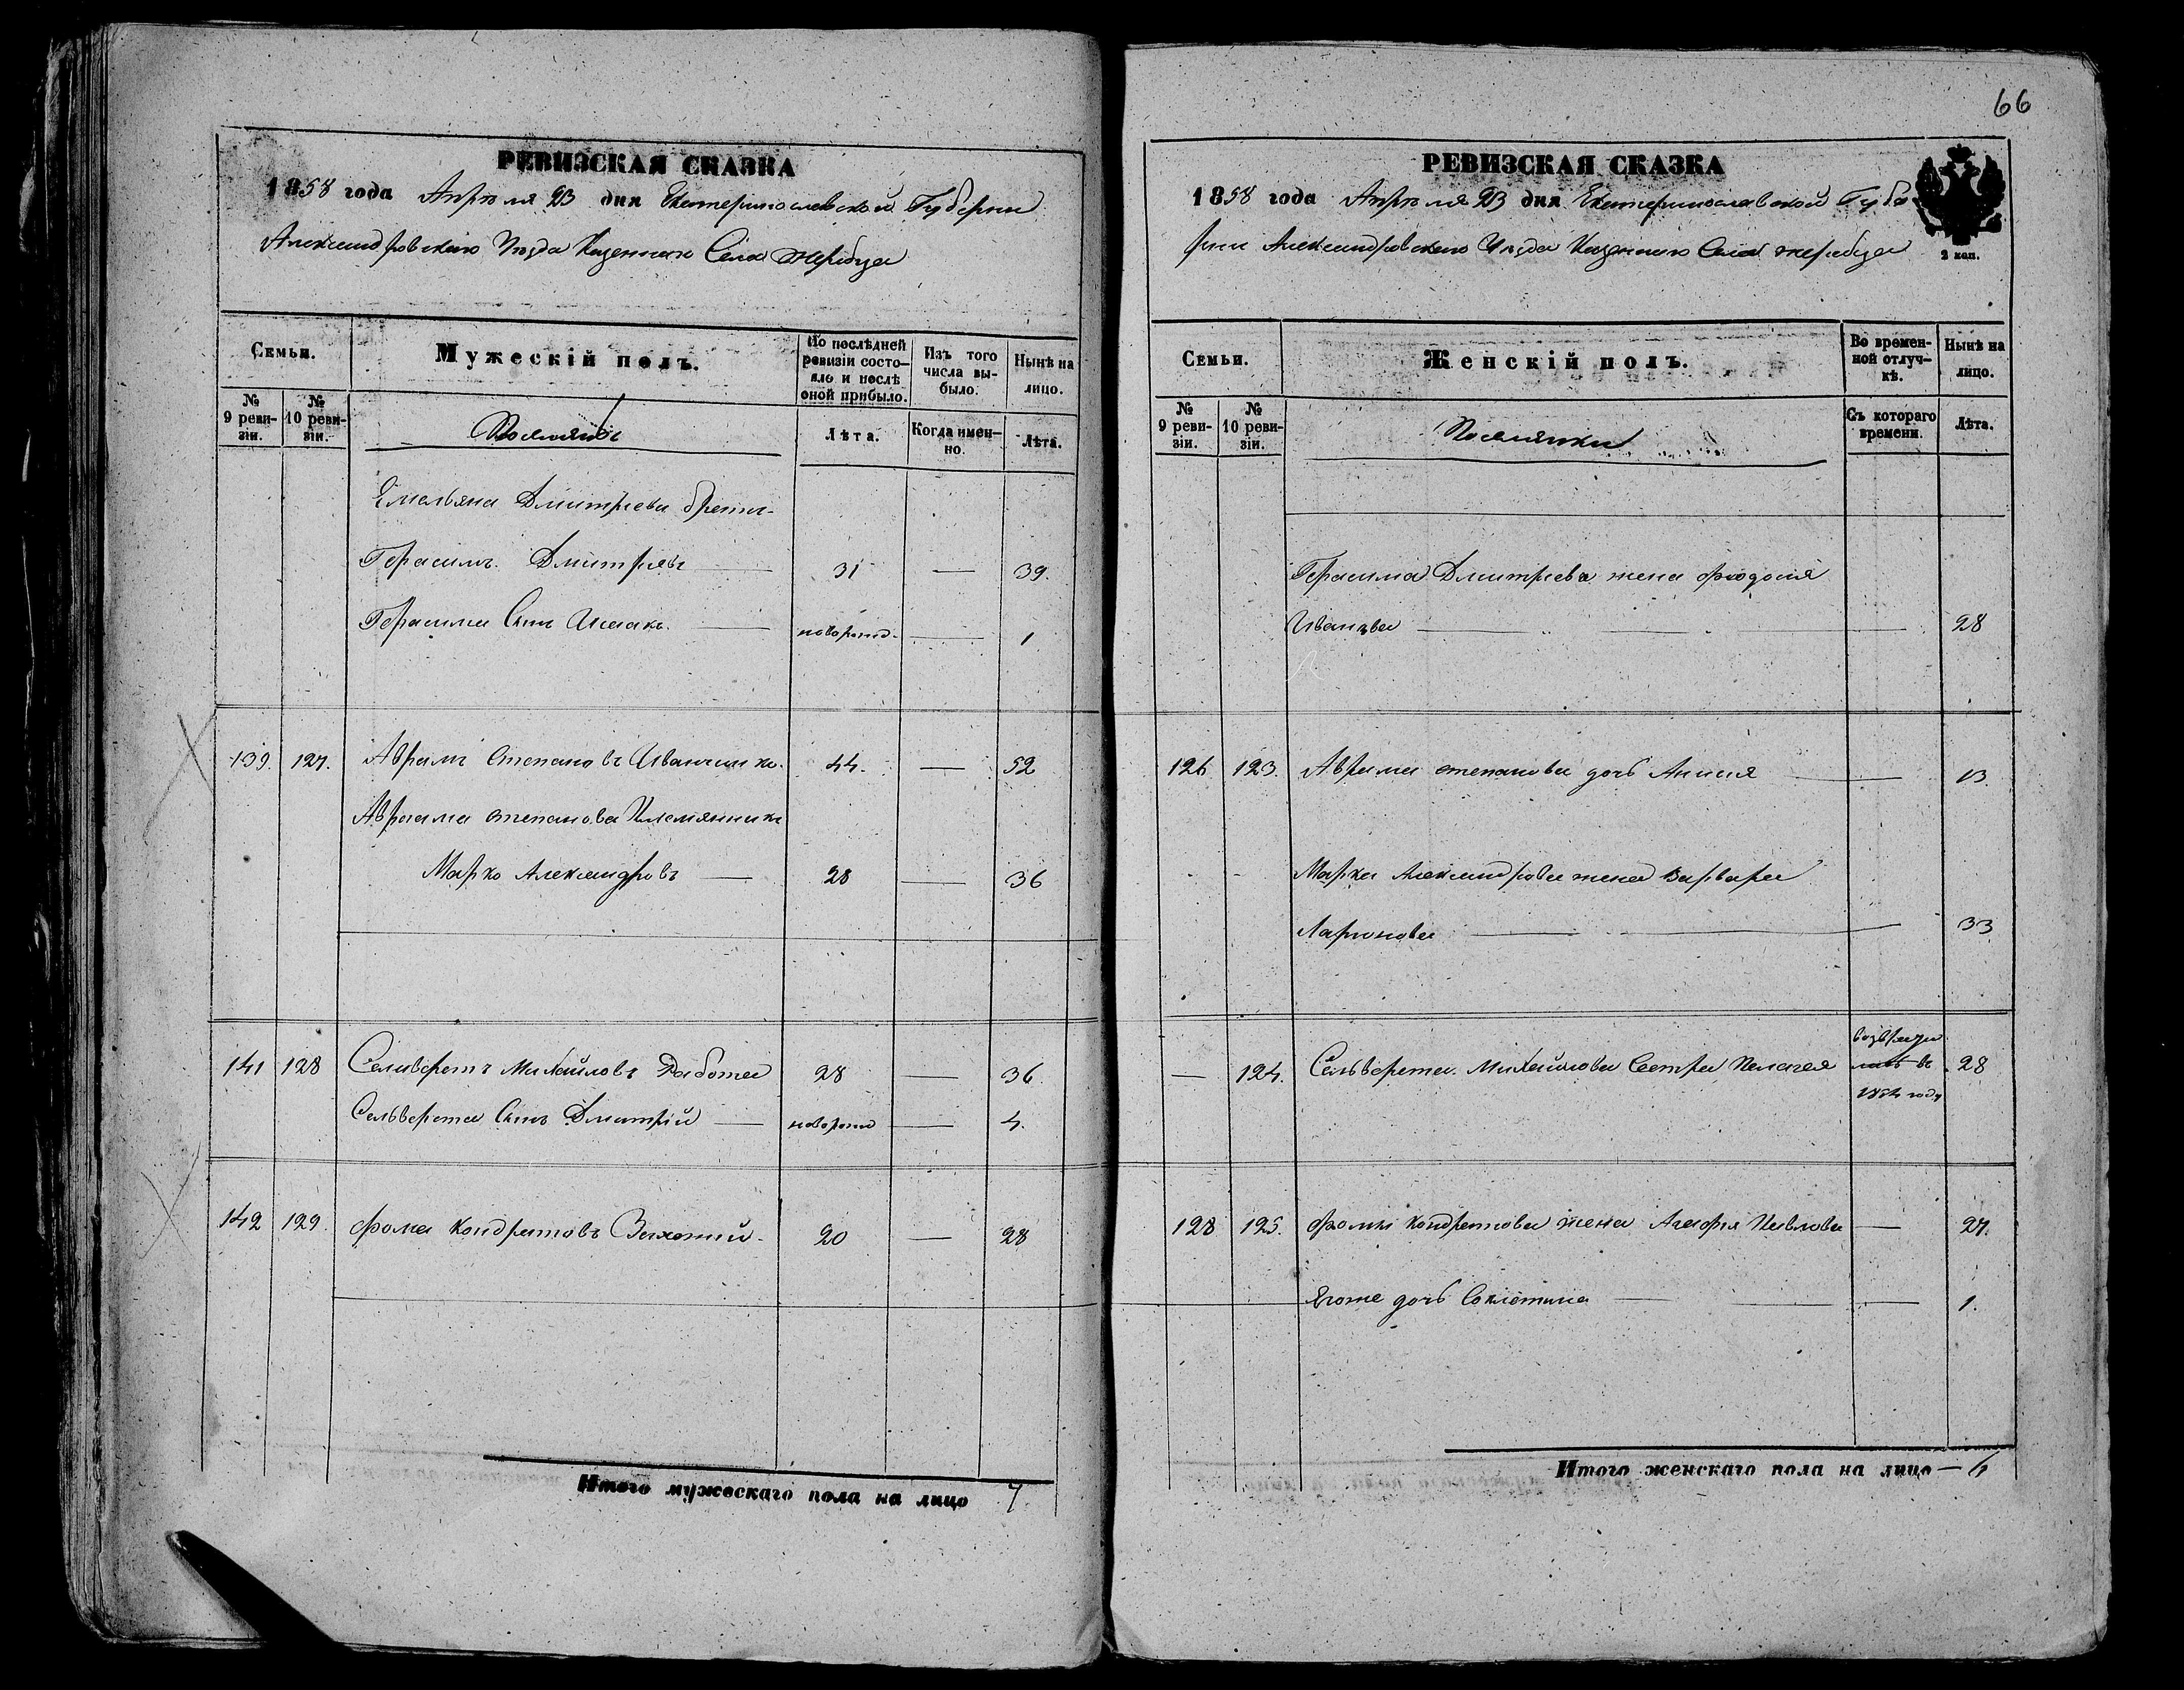 РЕВИЗСКАЯ СКАЗКА
1858 года Апреля 23 дня Екатеринославской Губернии
Александровского Уезда Казенного Села Жеребца
Семьи.
Мужескій полъ.
По послѣдней ревизіи состояло и послѣ оной прибыло.
Изъ того числа выбыло.
Нынѣ на лицо.
№ 9 ревизіи.
№ 10 ревизіи.
Поселяне
Лѣта.
Когда именно.
Лѣта.
Емельяна Дмитриева братья
Герасимъ Дмитриевъ 31 — 39.
Герасима Сынъ Исаакъ. новорожд. — 1
139. 127. Аврамъ Степановъ Иванченко. 44. — 52
Авраама Степанова Племянникъ
Марко Александровъ — 28 — 36
141 128 Селиверстъ Михайловъ Работа 28 — 36.
Сельверста Сынъ Дмитрий — новорожд — 4.
142 129. Фома Кондратовъ 20 — 28
Итого мужескаго пола на лицо 7
66
РЕВИЗСКАЯ СКАЗКА
1858 года Апреля 23 дня Екатеринославской Губе
рнии Александровского Уезда Казенного Села Жеребца
2 коп.
Семьи.
Женскій полъ.
Во временной отлучкѣ.
Нынѣ на лицо.
№ 9 ревизіи.
№ 10 ревизіи.
Поселянки
Съ котораго времени.
Лѣта.
Герасима Дмитриева жена Феодосия
Иванова — 28
126 123. Аврама Степанова дочь Анисия — 13.
Марка Александрова жена Варвара
Ларионова — 33
— 124. Сельверста Михайлова Сестра Пелагея возврати
лась въ 28
1854 году
128 125. Фомы Кондратова жена Агафия Павлова — 27.
Егоже дочь — 1.
Итого женскаго пола на лицо — 6